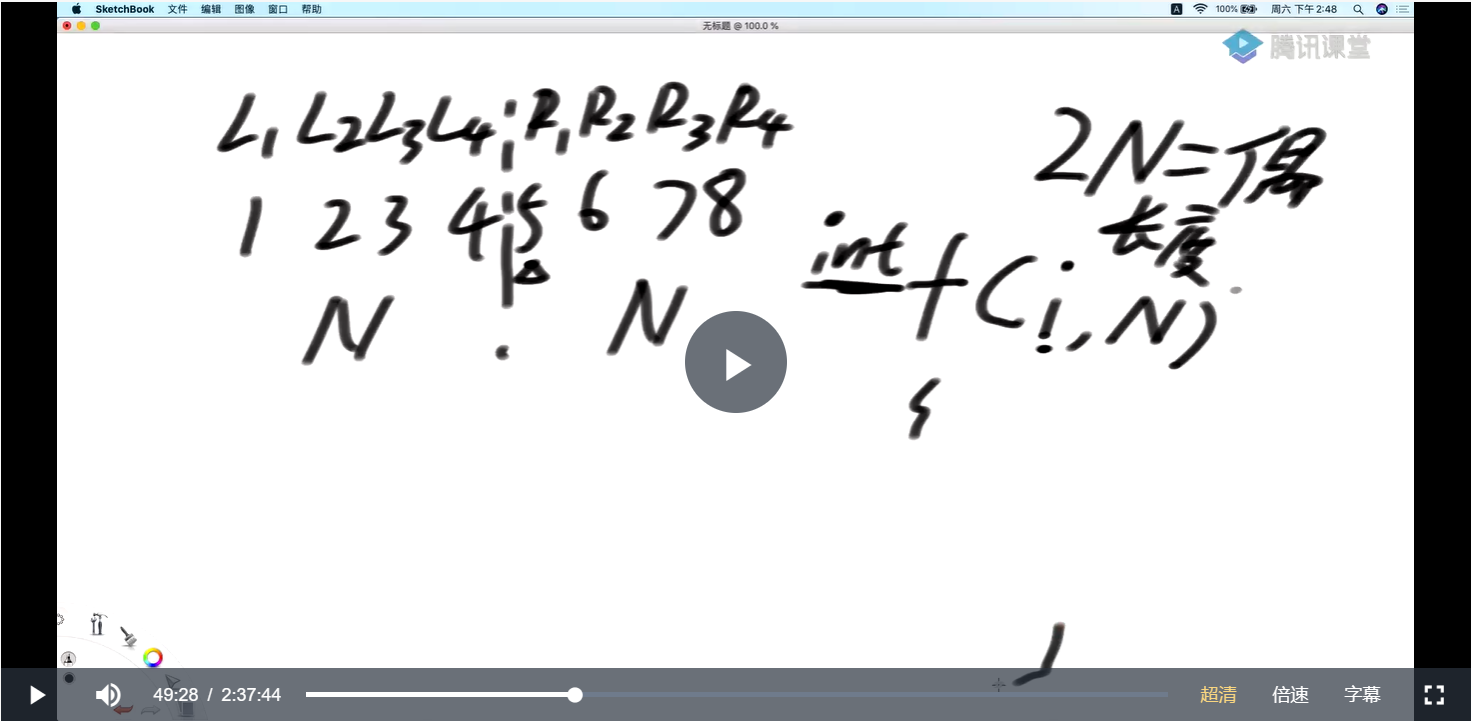 SketchBook 文件 编辑 图像 窗口 帮助 A 100% 周六 下午2:48
无标题 @ 100.0 %
腾讯课堂
L1 L2 L3 L4 R1 R2 R3 R4
2N=偶
长度
1 2 3 4 5 6 7 8
int f(i,N)
N N
{
49:28 / 2:37:44 超清 倍速 字幕